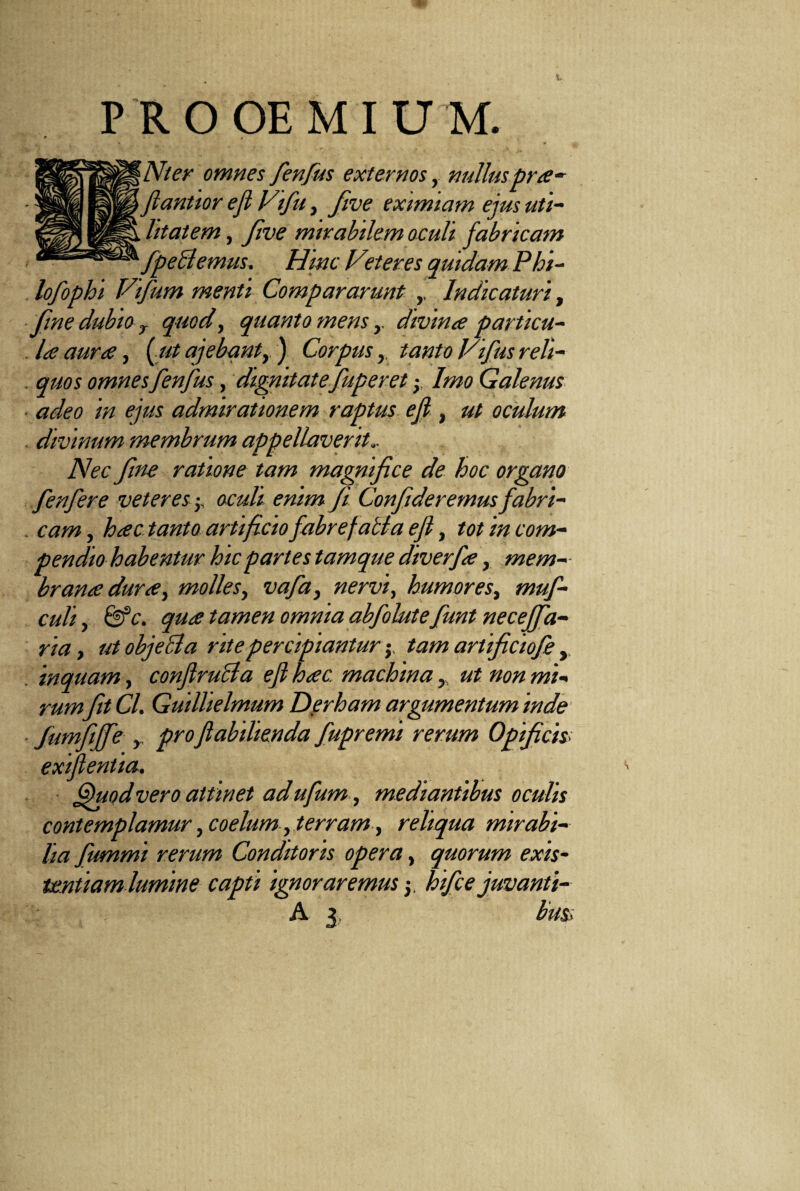 PROOEMIUM.
INter omnes ſenſus externos, nullus præ-
ſtantior eſt Viſu, ſive eximiam ejus uti-
litatem, ſive mirabilem oculi fabricam
ſpectemus. Hinc Veteres quidam Phi-
loſophi Viſum menti Compararunt, Indicaturi,
ſine dubio, quod, quanto mens, divinæ particu-
læ auræ, (ut ajebant,) Corpus, tanto Viſus reli-
quos omnes ſenſus, dignitate ſuperet; Imo Galenus
adeo in ejus admirationem raptus eſt, ut oculum
divinum membrum appellaverit.
Nec ſine ratione tam magnifice de hoc organo
ſenſere veteres; oculi enim ſi Conſideremus fabri-
cam, hæc tanto artificio fabrefacta eſt, tot in com-
pendio habentur hic partes tamque diverſæ, mem-
branæ duræ, molles, vaſa, nervi, humores, muſ-
culi, &c. quæ tamen omnia abſolute ſunt neceſſa-
ria, ut objecta rite percipiantur; tam artificioſe,
inquam, conſtructa eſt hæc machina, ut non mi-
rum ſit Cl. Guillielmum Derham argumentum inde
ſumſiſſe, pro ſtabilienda ſupremi rerum Opificis
exiſtentia.
Quod vero attinet ad uſum, mediantibus oculis
contemplamur, coelum, terram, reliqua mirabi-
lia ſummi rerum Conditoris opera, quorum exis-
tentiam lumine capti ignoraremus; hiſce juvanti-
A 3 bus